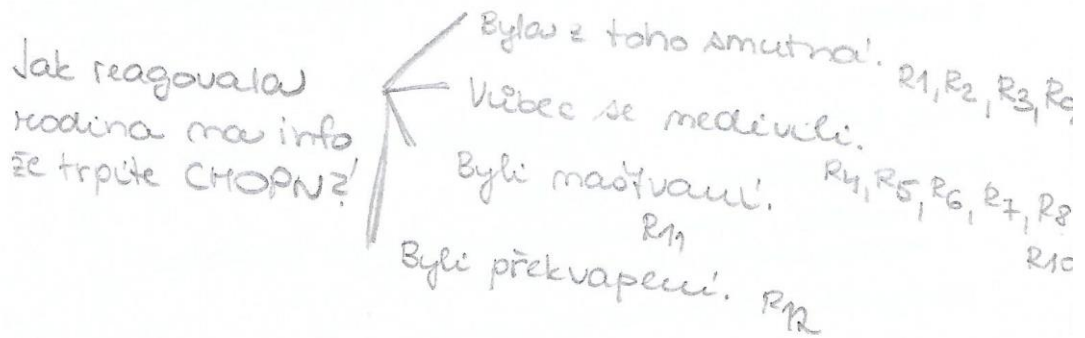 Jak reagovala
rodina na info
že trpíte CHOPN?
Byla z toho smutná.
R1, R2, R3, R9
Vůbec se nedivili.
R4, R5, R6, R7, R8
R10
Byli naštvaní.
R11
Byli překvapení. R12